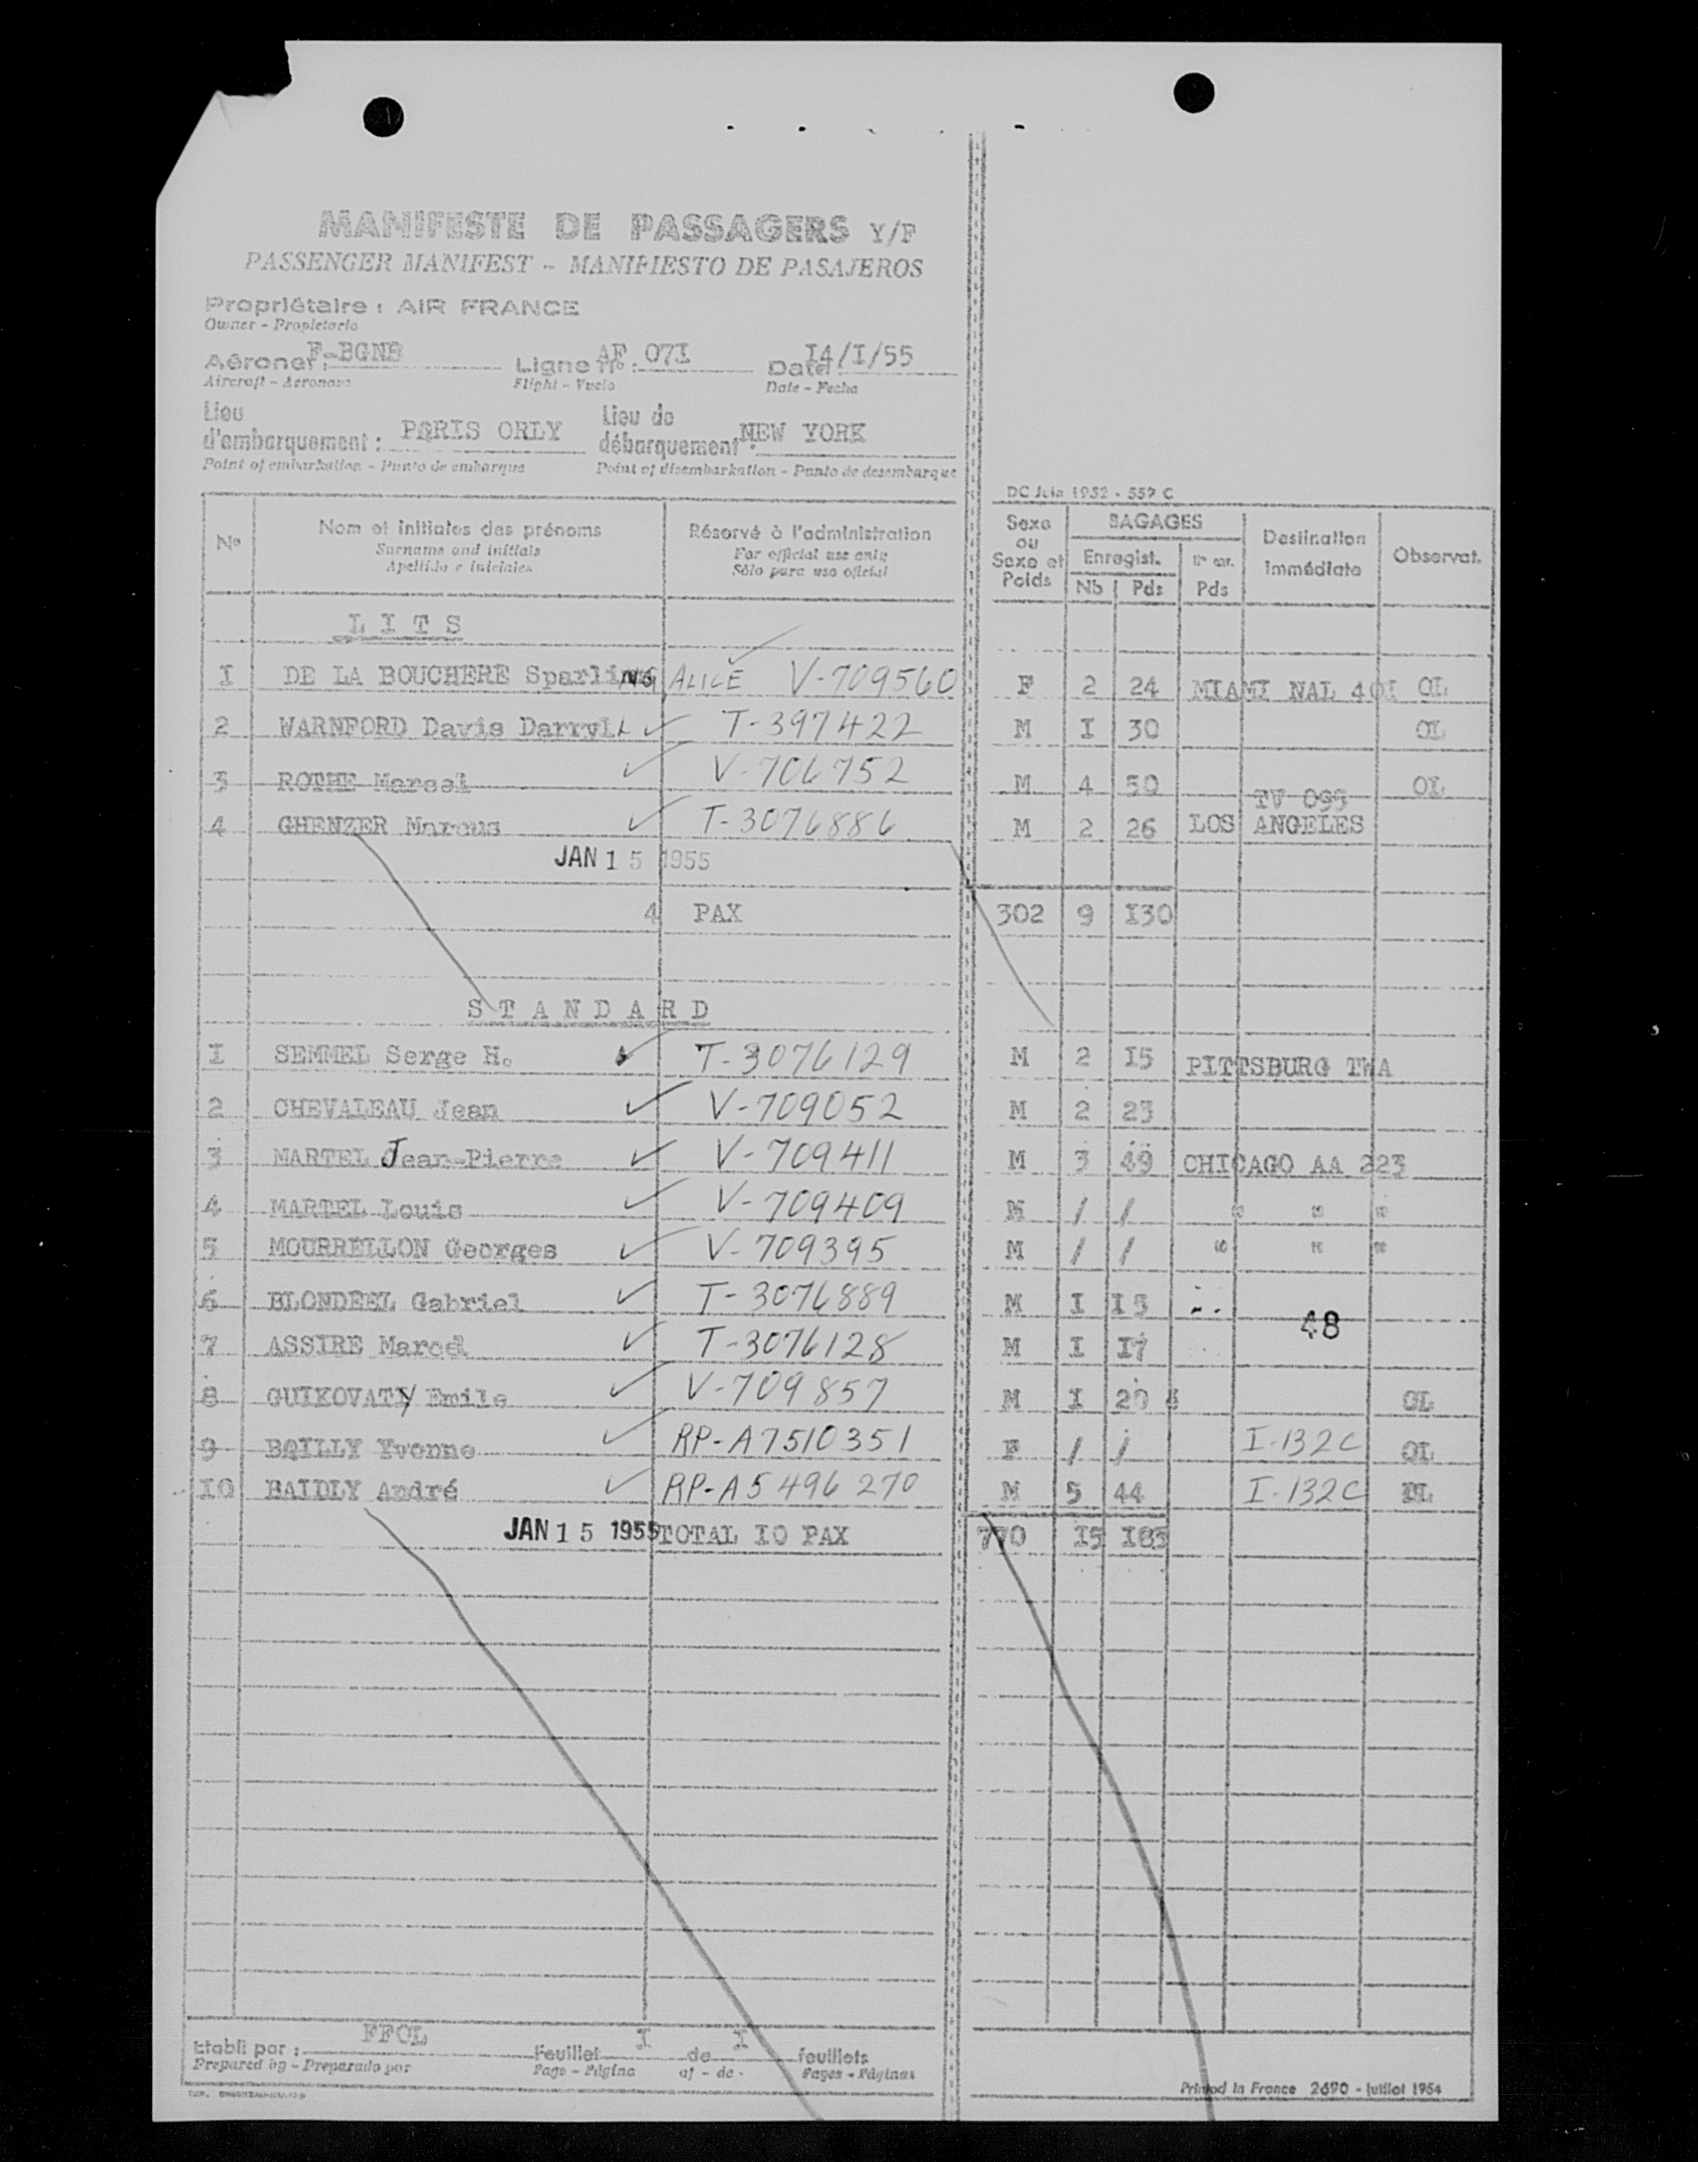 MANIFESTE DE PASSAGERS Y/F
PASSENGER MANIFEST - MANIFIESTO DE PASAJEROS
Propriétaire : AIR FRANCE
Owner - Propietario
Aéronef : F-BGNB Ligne n° : AF 07I Date I4/I/55
Aircraft - Aeronave Flight - Vuelo Date - Fecha
Lieu d'embarquement : PARIS ORLY Lieu de débarquement : NEW YORK
Point of embarkation - Punto de embarque Point of disembarkation - Punto de desembarque
DC Juin 1952 - 557 C
N° Nom et initiales des prénoms Réservé à l'administration Sexe ou Sexe et Poids BAGAGES Destination Immédiate Observat.
Surname and initials For official use only Enregist.
Apellido e iniciales Sólo para uso oficial Nb Pds Pds
L I T S
I DE LA BOUCHERE Sparling ALICE V-709560 F 2 24 MIAMI NAL 40I OL
2 WARNFORD Davis Darryl L T-397422 M I 30 OL
3 ROTHE Marcel V-706752 M 4 50 OL
TV 099
4 GHENZER Marcus T-3076886 M 2 26 LOS ANGELES
JAN 15 1955
4 PAX 302 9 I30
S T A N D A R D
I SEMMEL Serge H. T-3076129 M 2 I5 PITTSBURG TWA
2 CHEVALEAU Jean V-709052 M 2 23
3 MARTEL Jean-Pierre V-709411 M 3 49 CHICAGO AA 223
4 MARTEL Louis V-709409 M / / " " "
5 MOURRELLON Georges V-709395 M / / " " "
6 BLONDEEL Gabriel T-3076889 M I I5
48
7 ASSIRE Marcel T-3076128 M I I7
8 GUIKOVATY Emile V-709857 M I 20 OL
9 BAILLY Yvonne RP-A7510351 F / / I-132C OL
IO BAIDLY André RP-A5496270 M 5 44 I-132C
JAN 15 1955 TOTAL IO PAX 770 I5 I83
Etabli par : FFOL Feuillet I de I feuillets
Prepared by - Preparado por Page - Página of - de - Pages - Páginas
Printed in France 2690 - Juillet 1954